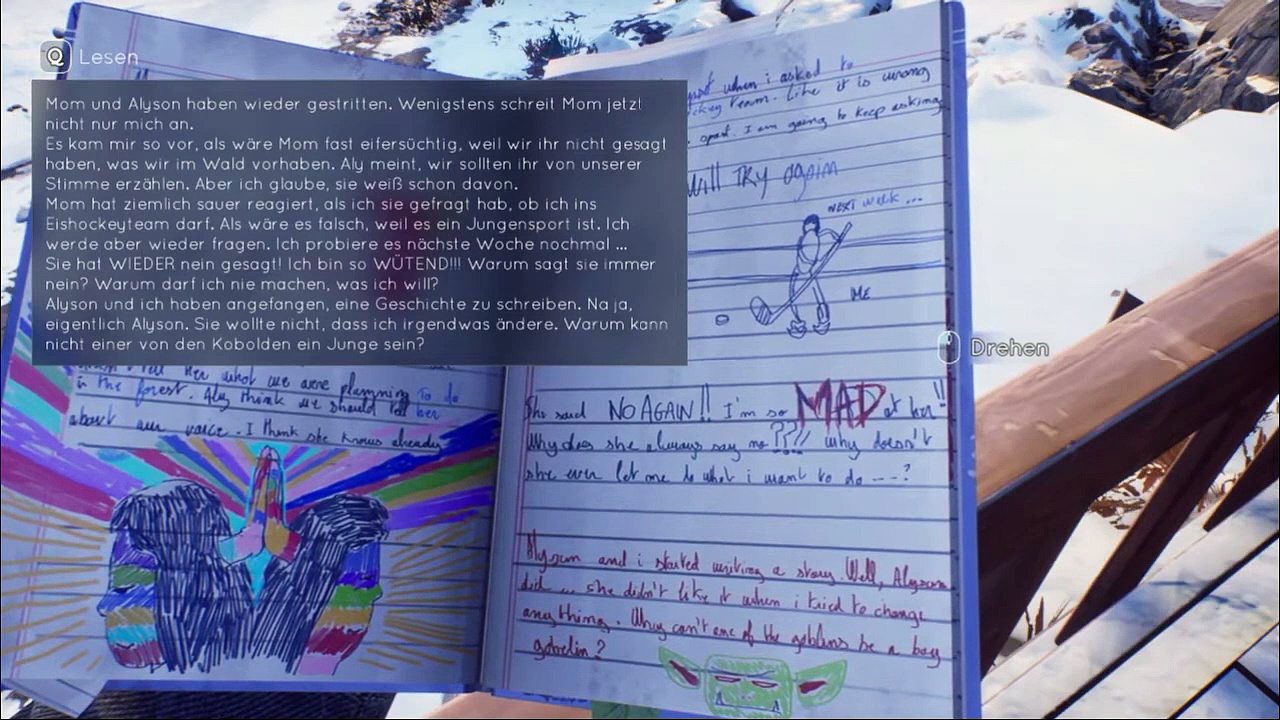 Lesen
Mom und Alyson haben wieder gestritten. Wenigstens schreit Mom jetzt
nicht nur mich an.
Es kam mir so vor, als wäre Mom fast eifersüchtig, weil wir ihr nicht gesagt
haben, was wir im Wald vorhaben. Aly meint, wir sollten ihr von unserer
Stimme erzählen. Aber ich glaube, sie weiß schon davon.
Mom hat ziemlich sauer reagiert, als ich sie gefragt hab, ob ich ins
Eishockeyteam darf. Als wäre es falsch, weil es ein Jungensport ist. Ich
werde aber wieder fragen. Ich probiere es nächste Woche nochmal ...
Sie hat WIEDER nein gesagt! Ich bin so WÜTEND!!! Warum sagt sie immer
nein? Warum darf ich nie machen, was ich will?
Alyson und ich haben angefangen, eine Geschichte zu schreiben. Na ja,
eigentlich Alyson. Sie wollte nicht, dass ich irgendwas ändere. Warum kann
nicht einer von den Kobolden ein Junge sein?
tell her what we were planning to do
in the forest. Aly think we should tell her
about our voice. I think she knows already
when i asked to
team. Like it is wrong
sport. I am going to keep asking
will TRY again
NEXT week ...
ME
Drehen
She said NO AGAIN!! I'm so MAD at her!!
Why does she always say no ??!! why doesn't
she ever let me do what i want to do ---?
Alyson and i started writing a story. Well, Alyson
did ... she didn't like it when i tried to change
anything. Why can't one of the goblins be a boy
gobelin?